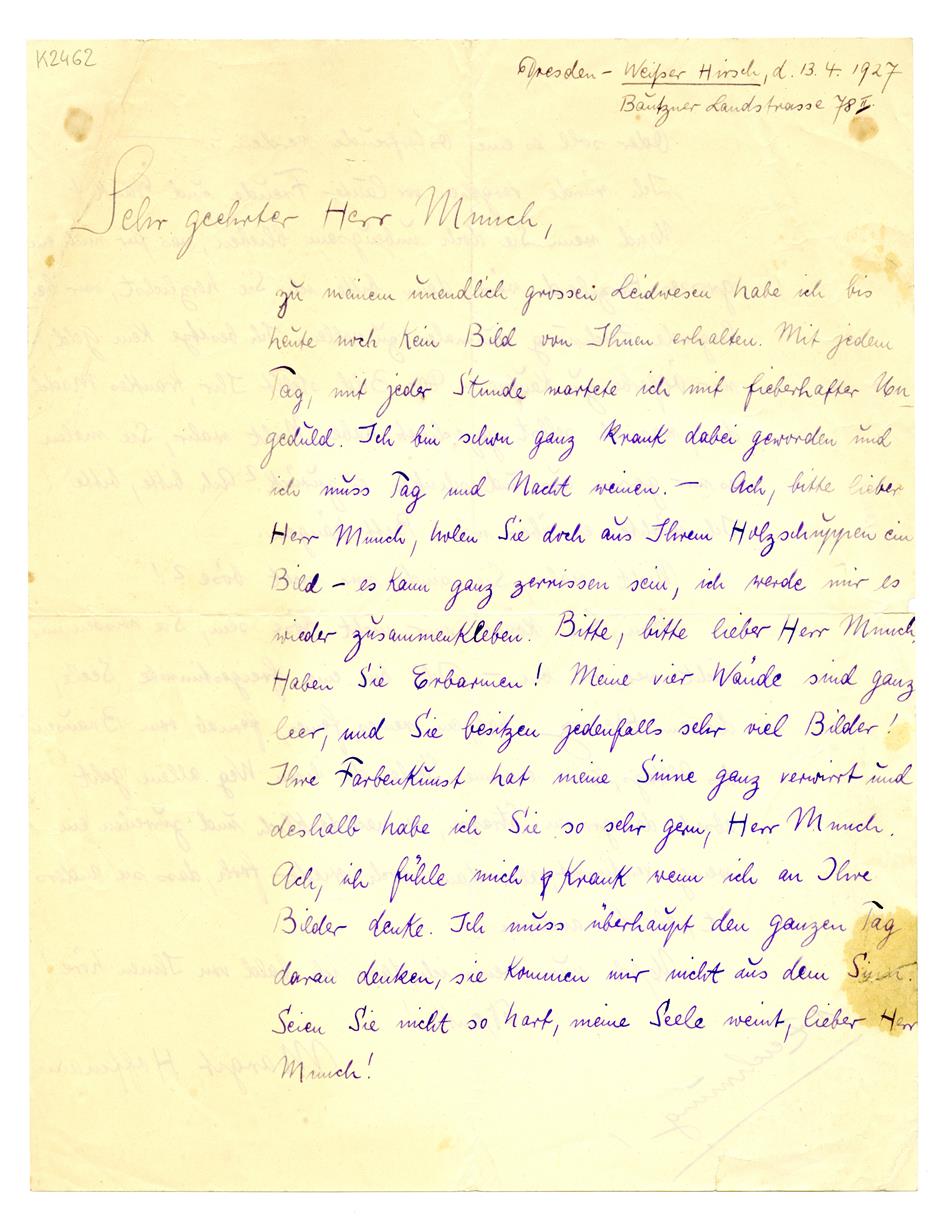 K2462
Dresden - Weißer Hirsch, d. 13. 4. 1927
Bautzner Landstrasse 78 II.
Sehr geehrter Herr Munch,
zu meinem unendlich grossen Leidwesen habe ich bis
heute noch kein Bild von Ihnen erhalten. Mit jedem
Tag, mit jeder Stunde wartete ich mit fieberhafter Un-
geduld. Ich bin schon ganz krank dabei geworden und
ich muss Tag und Nacht weinen. — Ach, bitte lieber
Herr Munch, holen Sie doch aus Ihrem Holzschuppen ein
Bild - es kann ganz zerrissen sein, ich werde mir es
wieder zusammenkleben. Bitte, bitte lieber Herr Munch.
Haben Sie Erbarmen! Meine vier Wände sind ganz
leer, und Sie besitzen jedenfalls sehr viel Bilder!
Ihre Farbenkunst hat meine Sinne ganz verwirrt und
deshalb habe ich Sie so sehr gern, Herr Munch.
Ach, ich fühle mich krank wenn ich an Ihre
Bilder denke. Ich muss überhaupt den ganzen Tag
daran denken, sie kommen mir nicht aus dem Sinn.
Seien Sie nicht so hart, meine Seele weint, lieber Herr
Munch!